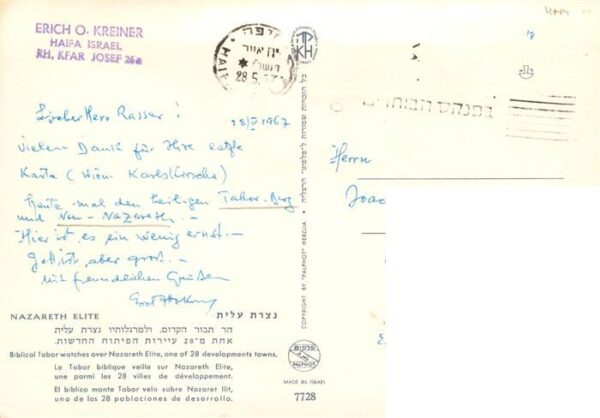 ERICH O. KREINER
HAIFA ISRAEL
RH, KFAR JOSEF 26a
חיפה
יח אייר
28.5.67
Lieber Herr Rasser!
28/V 1967
vielen Dank für Ihre letzte
Karte (Wien Karlskirche)
heute mal den heiligen Tabor-Berg
und Neu-Nazareth.-
Hier ist es ein wenig ernst.-
Gott ist aber gross.-
mit freundlichen Grüßen
NAZARETH ELITE
נצרת עלית
הר תבור הקדום, ולמרגלותיו נצרת עלית
אחת מ־28 עיירות הפיתוח החדשות.
Biblical Tabor watches over Nazareth Elite, one of 28 developments towns.
Le Tabor biblique veille sur Nazareth Elite,
une parmi les 28 villes de développement.
El biblico monte Tabor vela sobre Nazaret Ilit,
una de las 28 poblaciones de desarrollo.
כל הזכויות שמורות ל"פלפוט" הרצליה
COPYRIGHT BY "PALPHOT" HERZLIA
PALPHOT
MADE IN ISRAEL
7728
בפנקס הבוחרים
Herrn
Joac